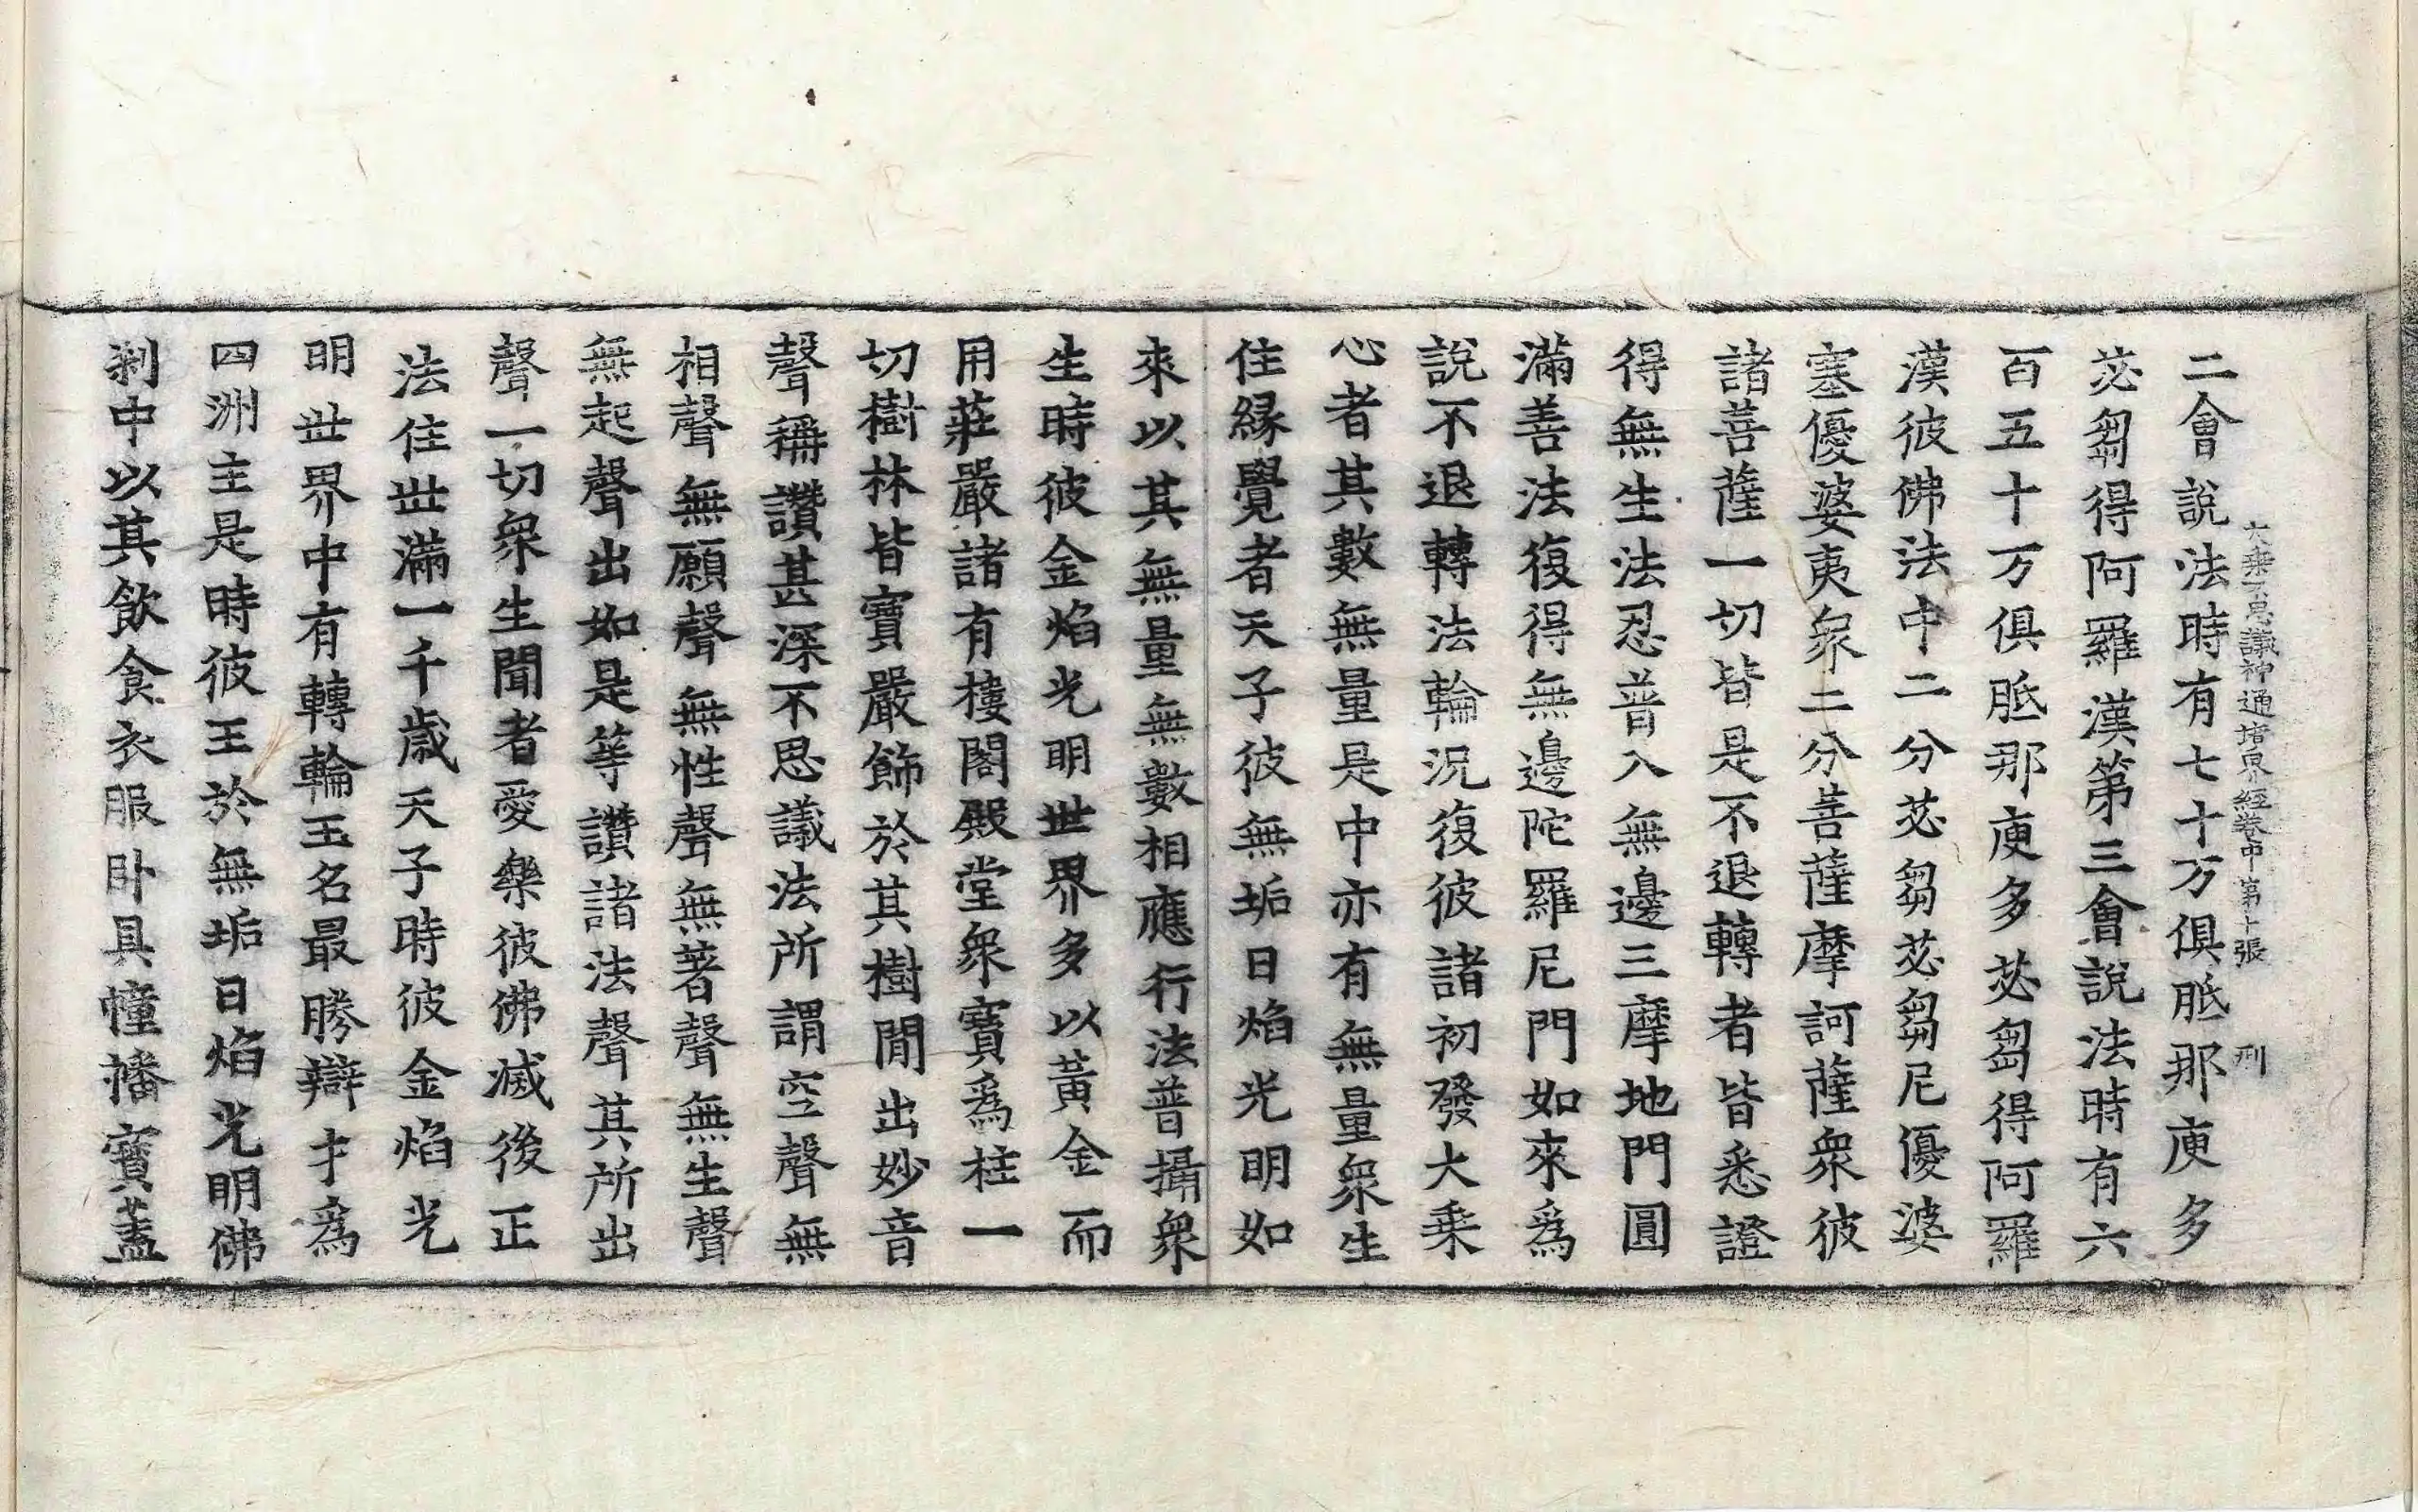 大乘不思議神通境界經卷中第十張 刑
二會說法時有七十万俱胝那庾多
苾芻得阿羅漢第三會說法時有六
百五十万俱胝那庾多苾芻得阿羅
漢彼佛法中二分苾芻苾芻尼優婆
塞優婆夷衆二分菩薩摩訶薩衆彼
諸菩薩一切皆是不退轉者皆悉證
得無生法忍普入無邊三摩地門圓
滿善法復得無邊陀羅尼門如來爲
說不退轉法輪況復彼諸初發大乘
心者其數無量是中亦有無量衆生
住緣覺者天子彼無垢日焰光明如
來以其無量無數相應行法普攝衆
生時彼金焰光明世界多以黃金而
用莊嚴諸有樓閣殿堂衆寶爲柱一
切樹林皆寶嚴飾於其樹間出妙音
聲稱讚甚深不思議法所謂空聲無
相聲無願聲無性聲無著聲無生聲
無起聲出如是等讚諸法聲其所出
聲一切衆生聞者愛樂彼佛滅後正
法住世滿一千歲天子時彼金焰光
明世界中有轉輪王名最勝辯才爲
四洲主是時彼王於無垢日焰光明佛
刹中以其飲食衣服卧具幢幡寶蓋